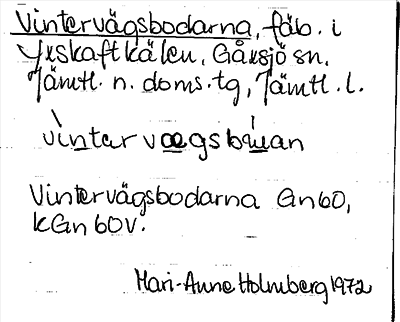 Vintervägsbodarna, fäb. i
Yxskaftkälen, Gåxsjö sn.
Jämtl. n. doms.tg, Jämtl. l.
vintervægsbuan
Vintervägsbodarna Gn60,
kGn60v.
Mari-Anne Holmberg 1972